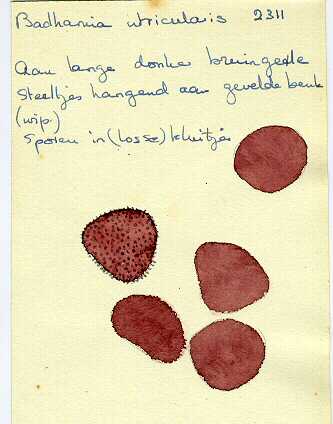 Badhamia utricularis 2311
Aan lange donker bruingele
steeltjes hangend aan gevelde beuk
(wip.)
Sporen in (losse) kluitjes